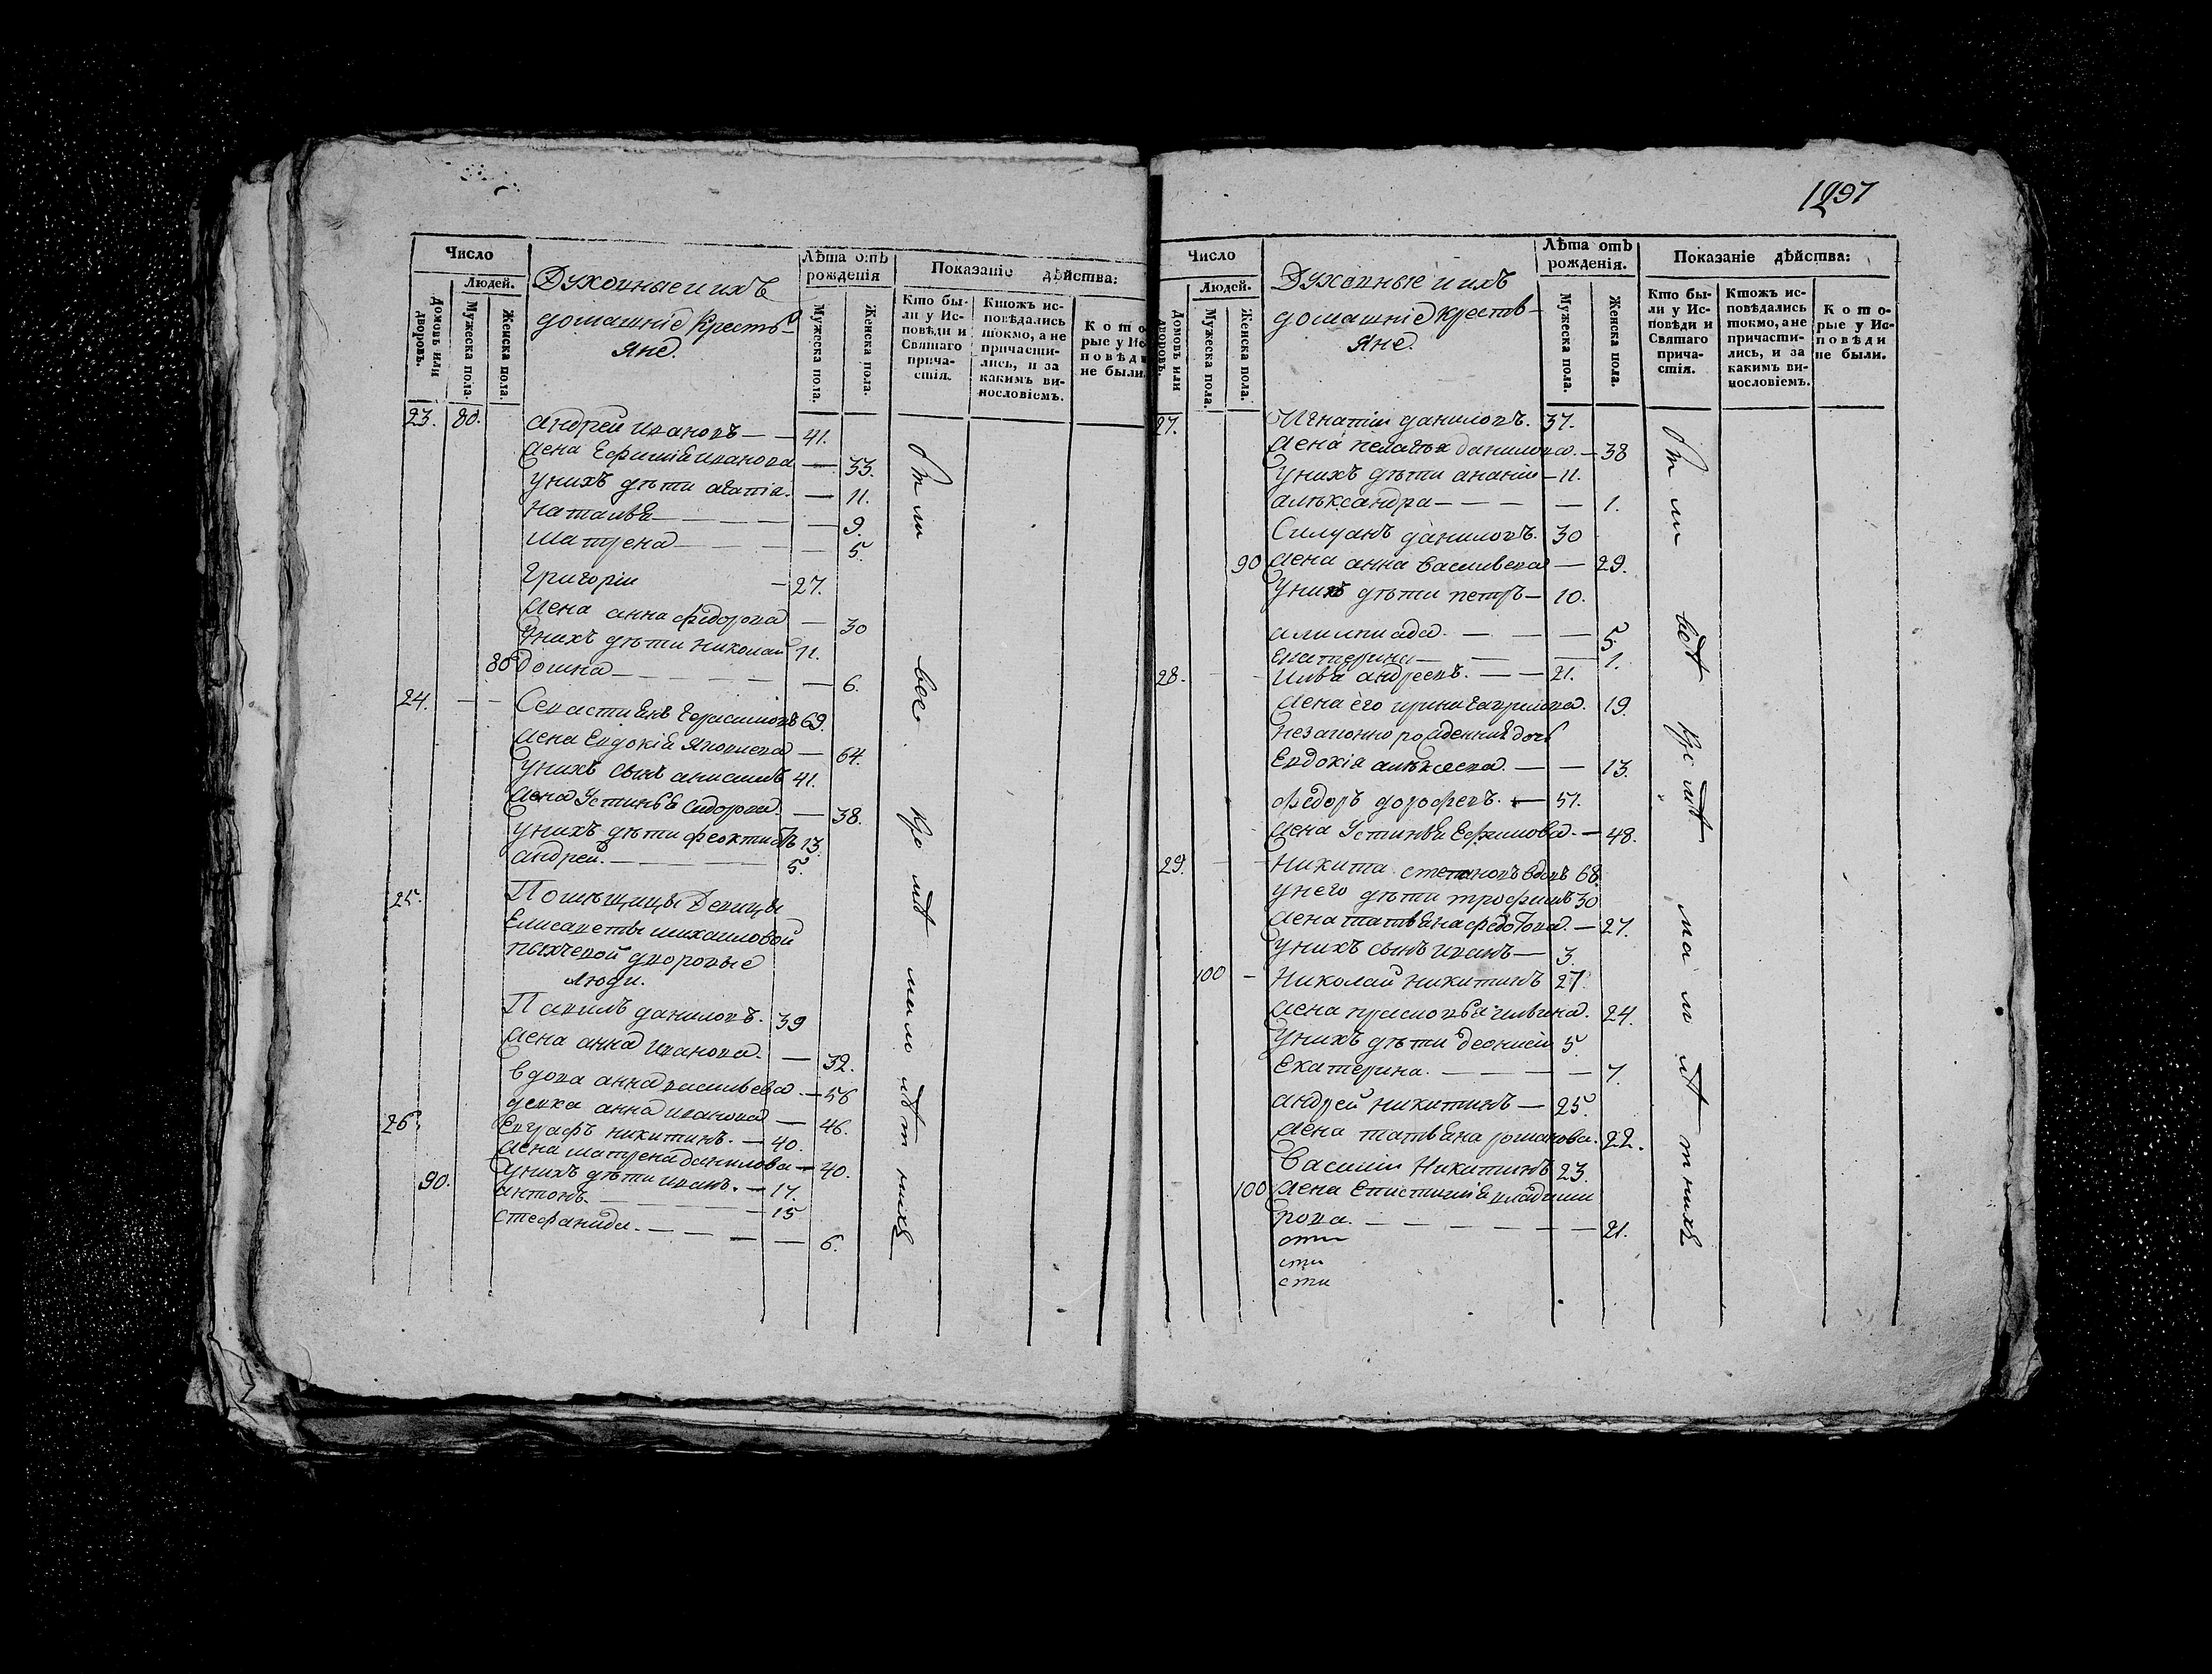 Число
Людей.
Домовъ или дворовъ.
Мужеска пола.
Женска пола.
Духовные и ихъ
домашніе Кресть-
яне.
Лѣта отъ рожденія
Мужеска пола.
Женска пола.
Показаніе дѣйства:
Кто бы-
ли у Ис-
повѣди и
Святаго
прича-
стія.
Ктожъ ис-
повѣдались
токмо, а не
причасти-
лись, и за
какимъ ви-
нословіемъ.
Кото
рые у Ис
повѣди
не были.
23. 80. андрей ивановъ — — 41.
жена Ефиміѣ иванова — 33.
у нихъ дѣти агапія — 11.
наталья — 9.
матрена — 5.
григоріи — 27.
жена анна федорова — 30
у нихъ дѣти николай 11.
80 домна — 6.
24. — — Севастиянъ Герасимовъ 69.
жена Евдокія яковлева — 64.
у нихъ сынъ анисимъ 41.
жена Устинья сидорова — 38.
у нихъ дѣти феоктистъ 13.
андрей. — 5.
25. Помѣщицы Девицы
Елисаветы михаиловой
дворовые
люди.
Павилъ даниловъ. 39
жена анна иванова. — 32.
вдова анна васильева. — 56
девка анна иванова — 46.
26. Евграфъ никитинъ. — 40.
жена матрена данилова — 40.
у нихъ дѣти иванъ. — 17.
90. антонъ. — 15
стефанида. — 6.
1297
Число
Людей.
Домовъ или дворовъ.
Мужеска пола.
Женска пола.
Духовные и ихъ
домашніе крестья-
яне.
Лѣта отъ
рожденія.
Мужеска пола.
Женска пола.
Показаніе дѣйства:
Кто бы-
ли у Ис-
повѣди и
Святаго
прича-
стія.
Ктожъ ис-
повѣдались
токмо, а не
причасти-
лись, и за
какимъ ви-
нословіемъ.
Кото-
рые у Ис-
повѣди
не были.
27. Игнатіи даниловъ. 37.
жена пелагѣя данилова. — 38
у нихъ дѣти ананіи — 11.
александра — — — 1.
Силуанъ даниловъ. 30
90 жена анна васильева — 29.
у нихъ дѣти петръ — 10.
алимпиада. — — 5.
екатерина — — 1.
28. Илья андреевъ. — — 21.
жена его ирина гаврилова. 19.
незаконно рожденная дочь
Евдокія алексеева. — — 13.
Федоръ дорофеевъ. — 51.
жена Устинья Ефимова. — 48.
29. Никита степановъ вдовъ 68.
у него дѣти трофимъ 30
жена татьяна федотова. — 27.
у нихъ сынъ иванъ — 3.
100 — николай никитинъ 27.
жена прасковья ильина. 24.
у нихъ дѣти 5.
Екатерина. — — — — 7.
андрей никитинъ — 25.
жена татьяна романова. 22.
Василіи Никитинъ 23.
100 жена Епистиміѣ владими
рова. — — — — — 21.